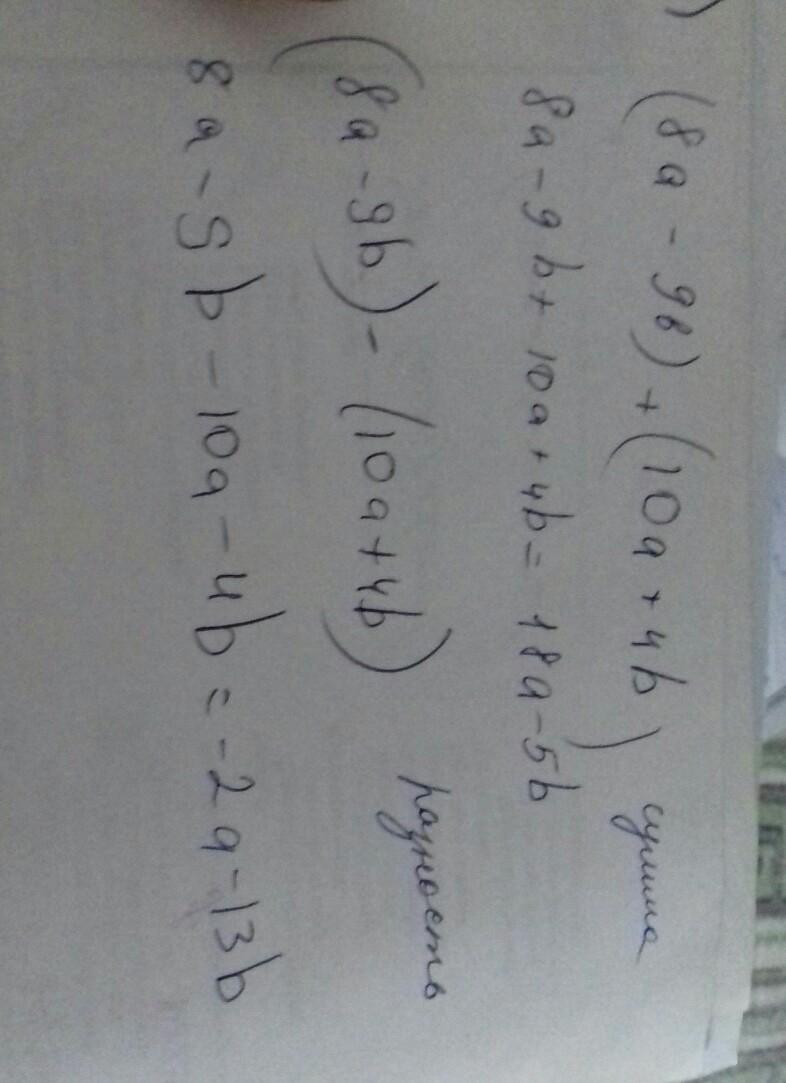 ) (8a - 9b) + (10a + 4b) сумма
8a - 9b + 10a + 4b = 18a - 5b
(8a - 9b) - (10a + 4b) разность
8a - 9b - 10a - 4b = -2a - 13b